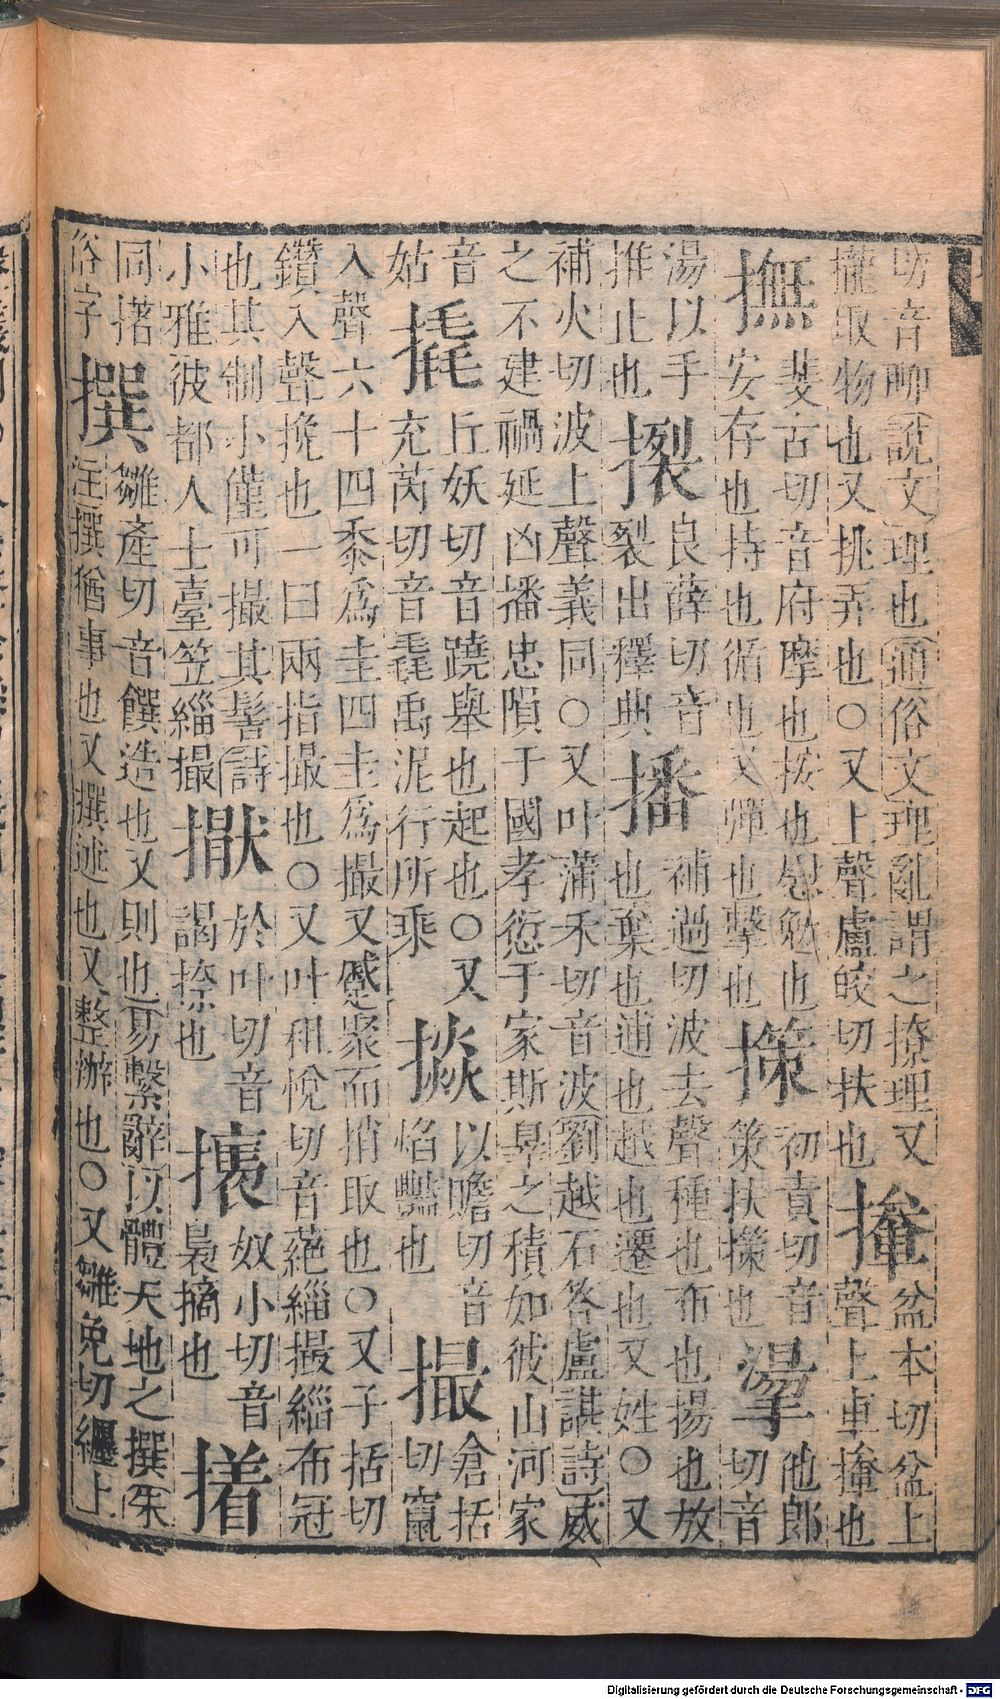 切音聊說文理也通俗文理亂謂之撩理又
攏取物也又挑弄也○又上聲盧皎切扶也
𢵧盆本切盆上
聲上車𢵧也
撫
斐古切音府摩也按也慰勉也
安存也持也循也又彈也擊也
㨲初責切音
策扶㨲也
㼒他郎切音
湯以手
推止也
㩉良薛切音
裂出釋典
播補過切波去聲種也布也揚也放
也棄也逋也越也遷也又姓○又
補火切波上聲義同○又叶蒲禾切音波劉越石答盧諶詩威
之不建禍延凶播忠隕于國孝愆于家斯辠之積如彼山河家
音
姑
撬
丘妖切音蹺舉也起也○又
充芮切音毳禹泥行所乘
掞以贍切音
焰豔也
撮倉括
切竄
入聲六十四黍爲圭四圭爲撮又蹙聚而捎取也○又子括切
鑽入聲挽也一曰兩指撮也○又叶租悅切音蕝緇撮緇布冠
也其制小僅可撮其髻詩
小雅彼都人士臺笠緇撮
㨖於叶切音
謁捺也
㩭奴小切音
裊摘也
撯
同撦
俗字
撰雛產切音饌造也又則也易繫辭以體天地之撰朱
注撰猶事也又撰述也又整辦也○又雛免切纏上
Digitalisierung gefördert durch die Deutsche Forschungsgemeinschaft - DFG